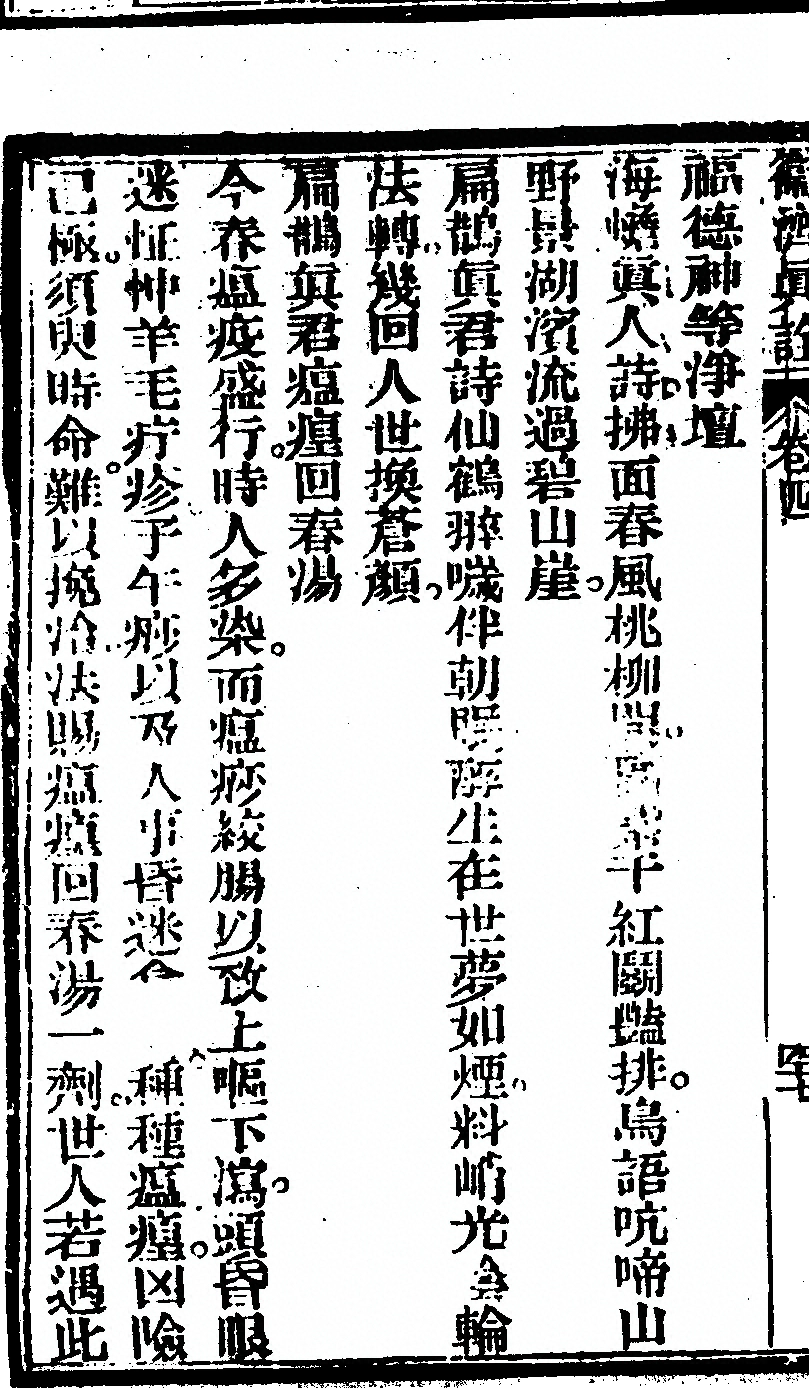 濟眞 卷四
福德神等淨壇
海幢眞人詩拂面春風桃柳 千紅鬬豔排鳥語吭啼山
野景湖濱流過碧山崖
扁鵲眞君詩仙鶴翠 伴朝 生在世夢如煙料峭光陰輪
法轉幾回人世換蒼顏
扁鵲眞君瘟㾮回春湯
今春瘟疫盛行時人多染而瘟痧絞腸以致上嘔下瀉頭昏眼
迷怔忡羊毛疔疹子午痧以及人事昏迷合 種種瘟㾮凶險
已極須臾時命難以挽 法賜瘟㾮回春湯一劑世人若遇此